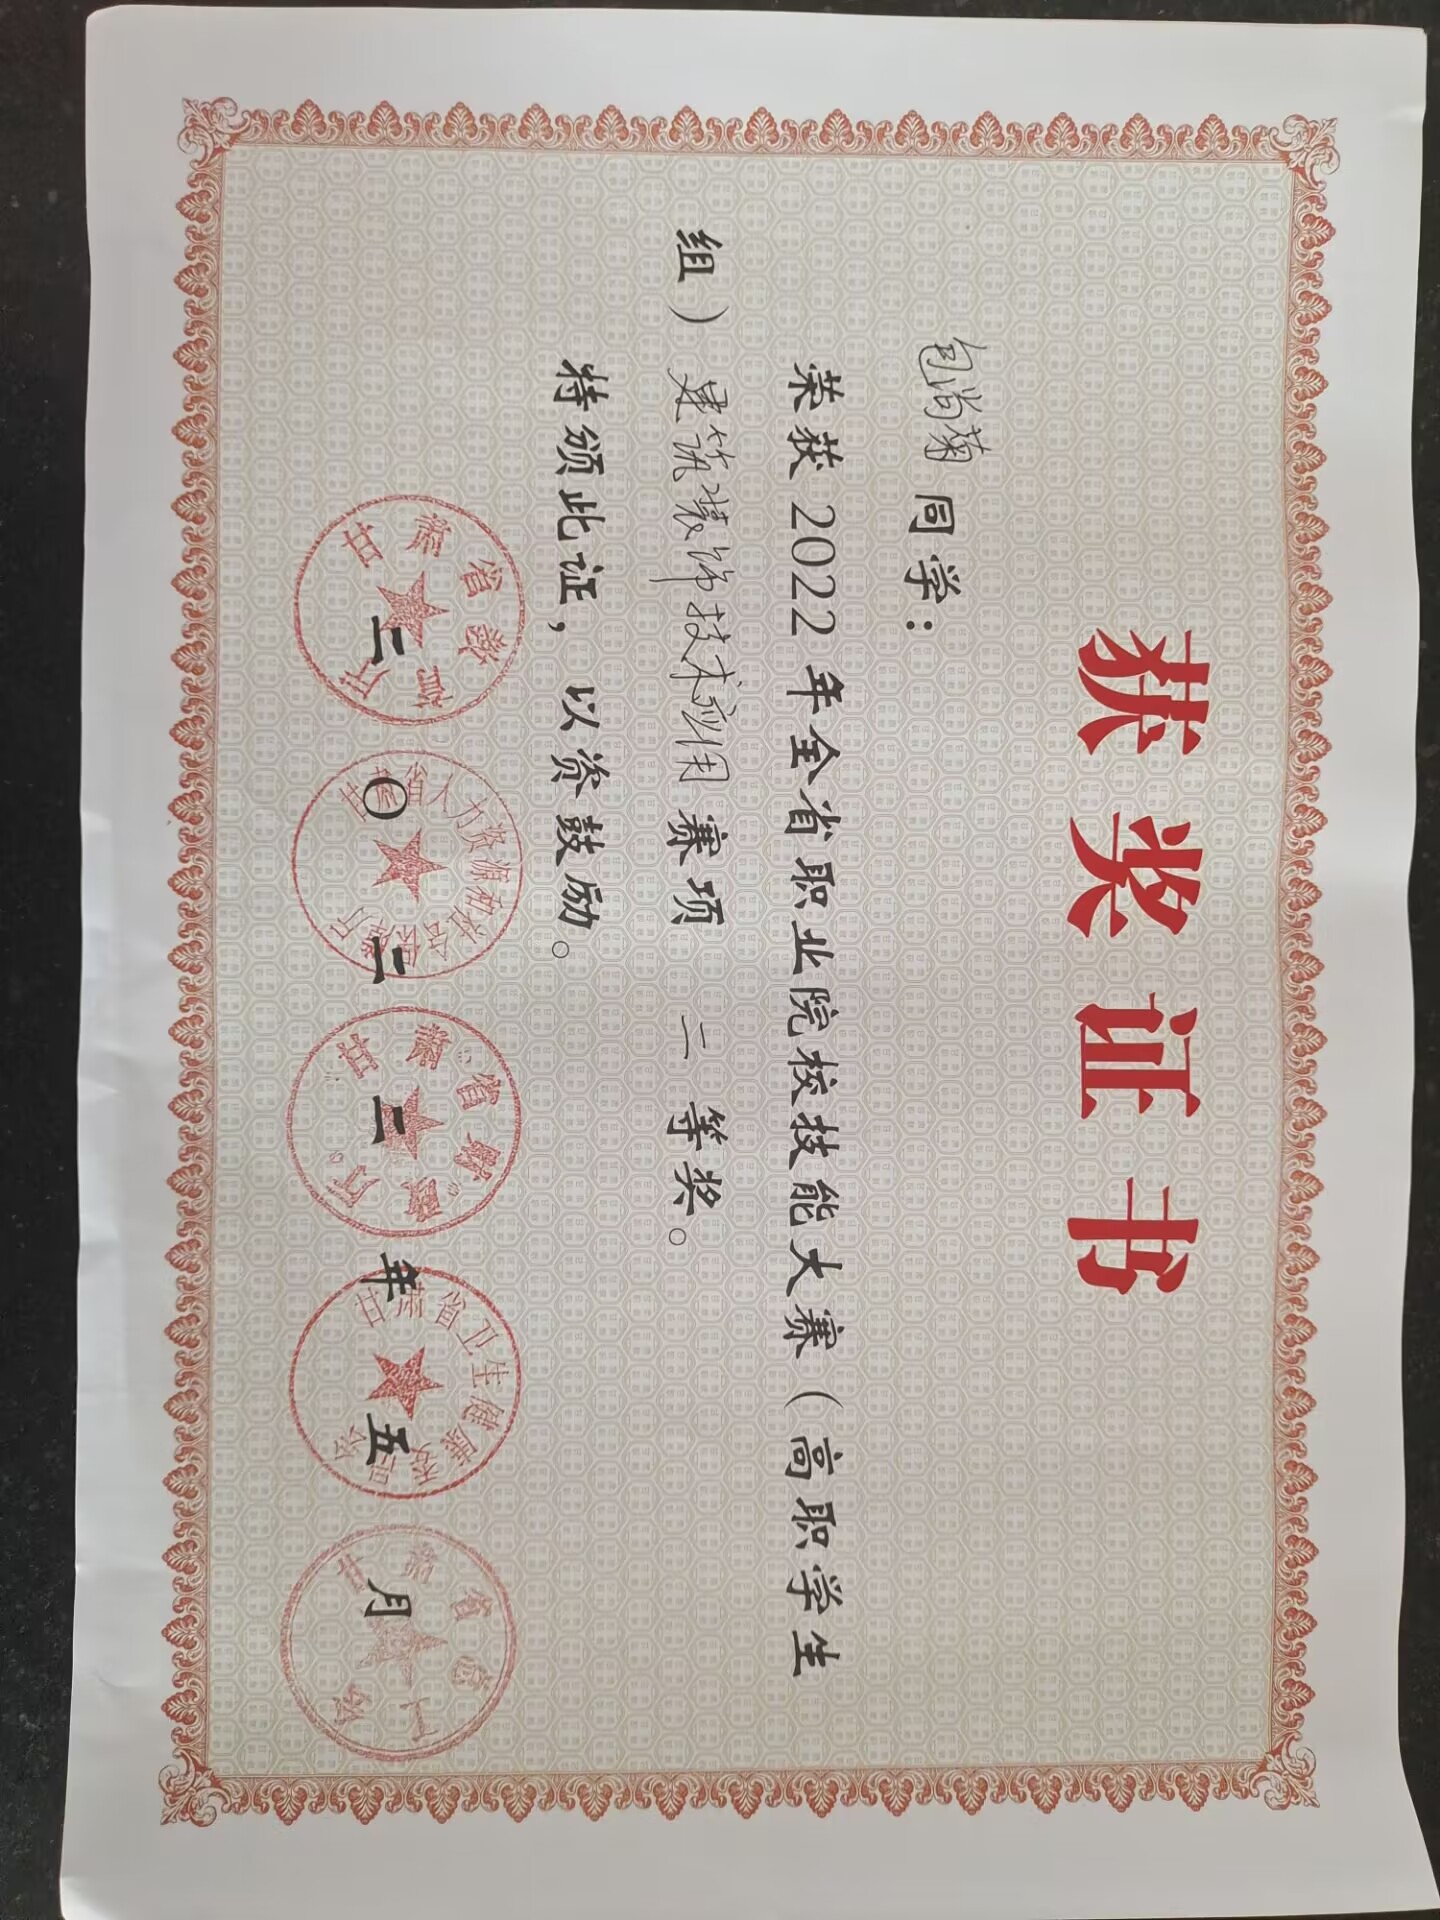 获奖证书
包尚菊同学：
荣获2022年全省职业院校技能大赛（高职学生
组）建筑装饰技术应用赛项 二 等奖。
特颁此证，以资鼓励。
甘肃省教育厅
甘肃省人力资源和社会保障厅
甘肃省财政厅
甘肃省卫生健康委员会
甘肃省总工会
二〇二二年五月